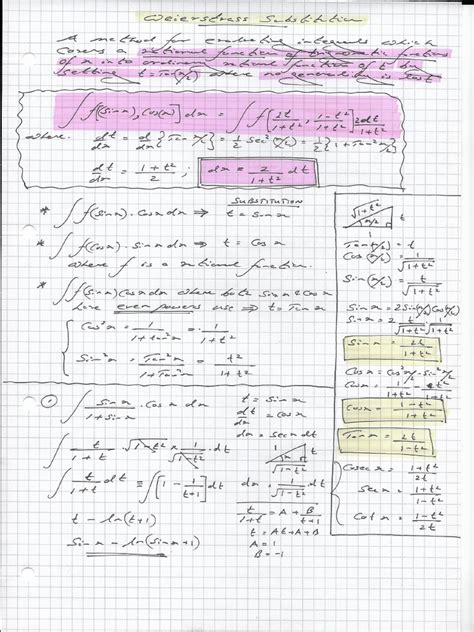 Weierstrass Substitution
A method for evaluating integrals which
covers a rational function of trigonometric functions
of x into ordinary rational function of t by
setting t = Tan(x/2) where no generalism is lost
∫ f(Sinx), Cos(x)] dx = ∫ f[2t/1+t², 1-t²/1+t²] 2dt/1+t²
where. dt/dx = d/dx {Tan x/2} = 1/2 Sec²(x/2) = 1/2{1+Tan²x/2}
dt/dx = 1+t²/2 ; dx = 2/1+t² dt
SUBSTITUTION
* ∫ f(Sinx). Cosx dx ⇒ t = Sinx
* ∫ f(Cosx). Sinx dx ⇒ t = Cosx
where f is a rational function.
* ∫ f(Sinx) Cosx dx where both Sinx & Cosx
have even powers use ⇒ t = Tanx
Cos²x = 1/1+tan²x = 1/1+t²
Sin²x = Tan²x/1+Tan²x = t²/1+t²
√1+t² t
x/2
1
Tan(x/2) = t
Cos(x/2) = 1/√1+t²
Sin(x/2) = t/√1+t²
Sinx = 2Sin(x/2)Cos(x/2)
Sinx = 2 t/√1+t² 1/√1+t²
Sinx = 2t/1+t²
Cosx = Cos²x/2 - Sin²x/2
Cosx = 1/1+t² - t²/1+t²
Cosx = 1-t²/1+t²
Tanx = 2t/1-t²
Cosecx = 1+t²/2t
Secx = 1+t²/1-t²
Cotx = 1-t²/2t
① ∫ Sinx/1+Sinx . Cosx dx
t = Sinx
dt/dx = Cosx
dx = Secx dt
∫ t/1+t . √1-t² x 1/√1-t² dt
1 t
x
√1-t²
∫ t/1+t dt ≡ ∫[1 - 1/t+1] dt
dx = 1/√1-t² dt
t - ln(t+1)
Sinx - ln(Sinx+1)
t/1+t = A + B/t+1
t = At+A+B
A = 1
B = -1